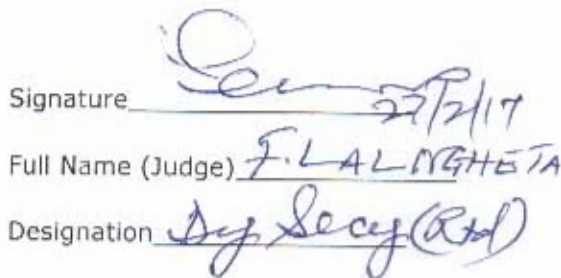 Signature 27/2/17
Full Name (Judge) F. LALNGHETA
Designation Dy Secy (Rtd)